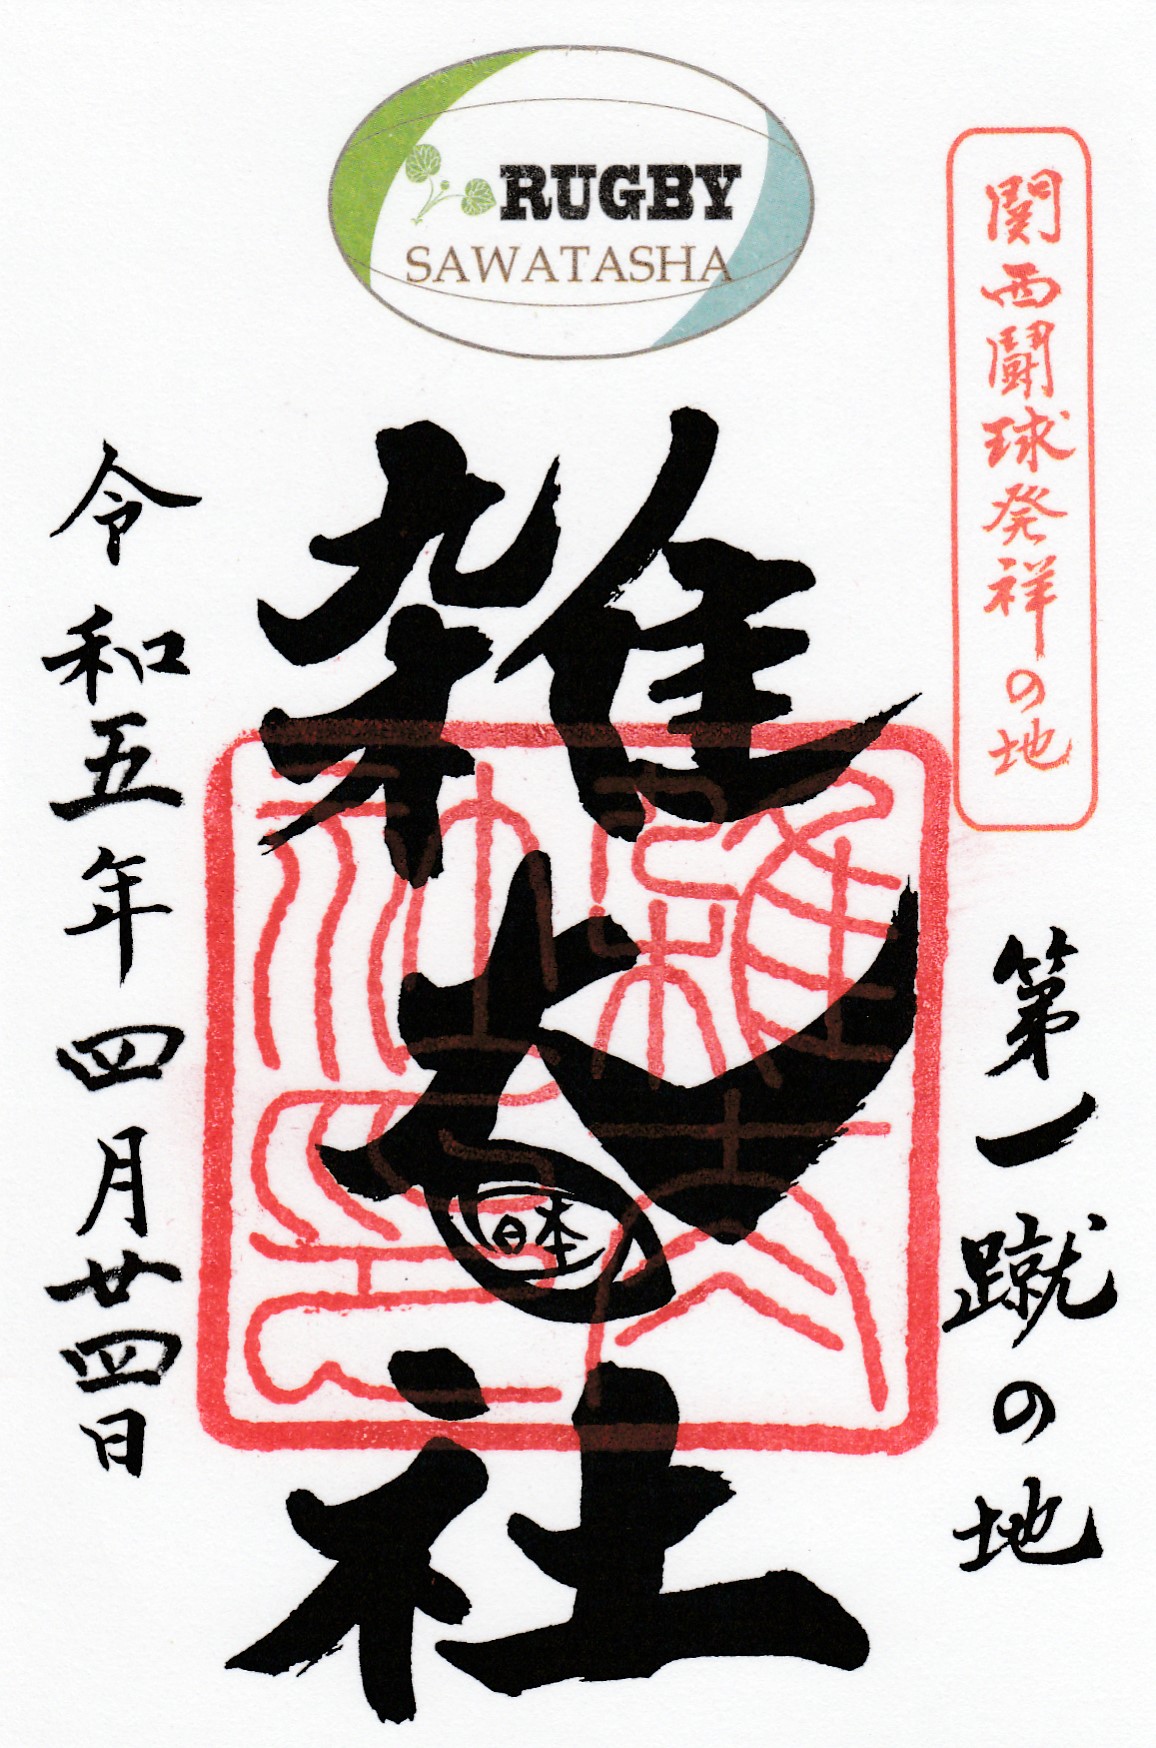 RUGBY
SAWATASHA
関西闘球発祥の地
第一蹴の地
雑太社
日本
令和五年四月廿四日